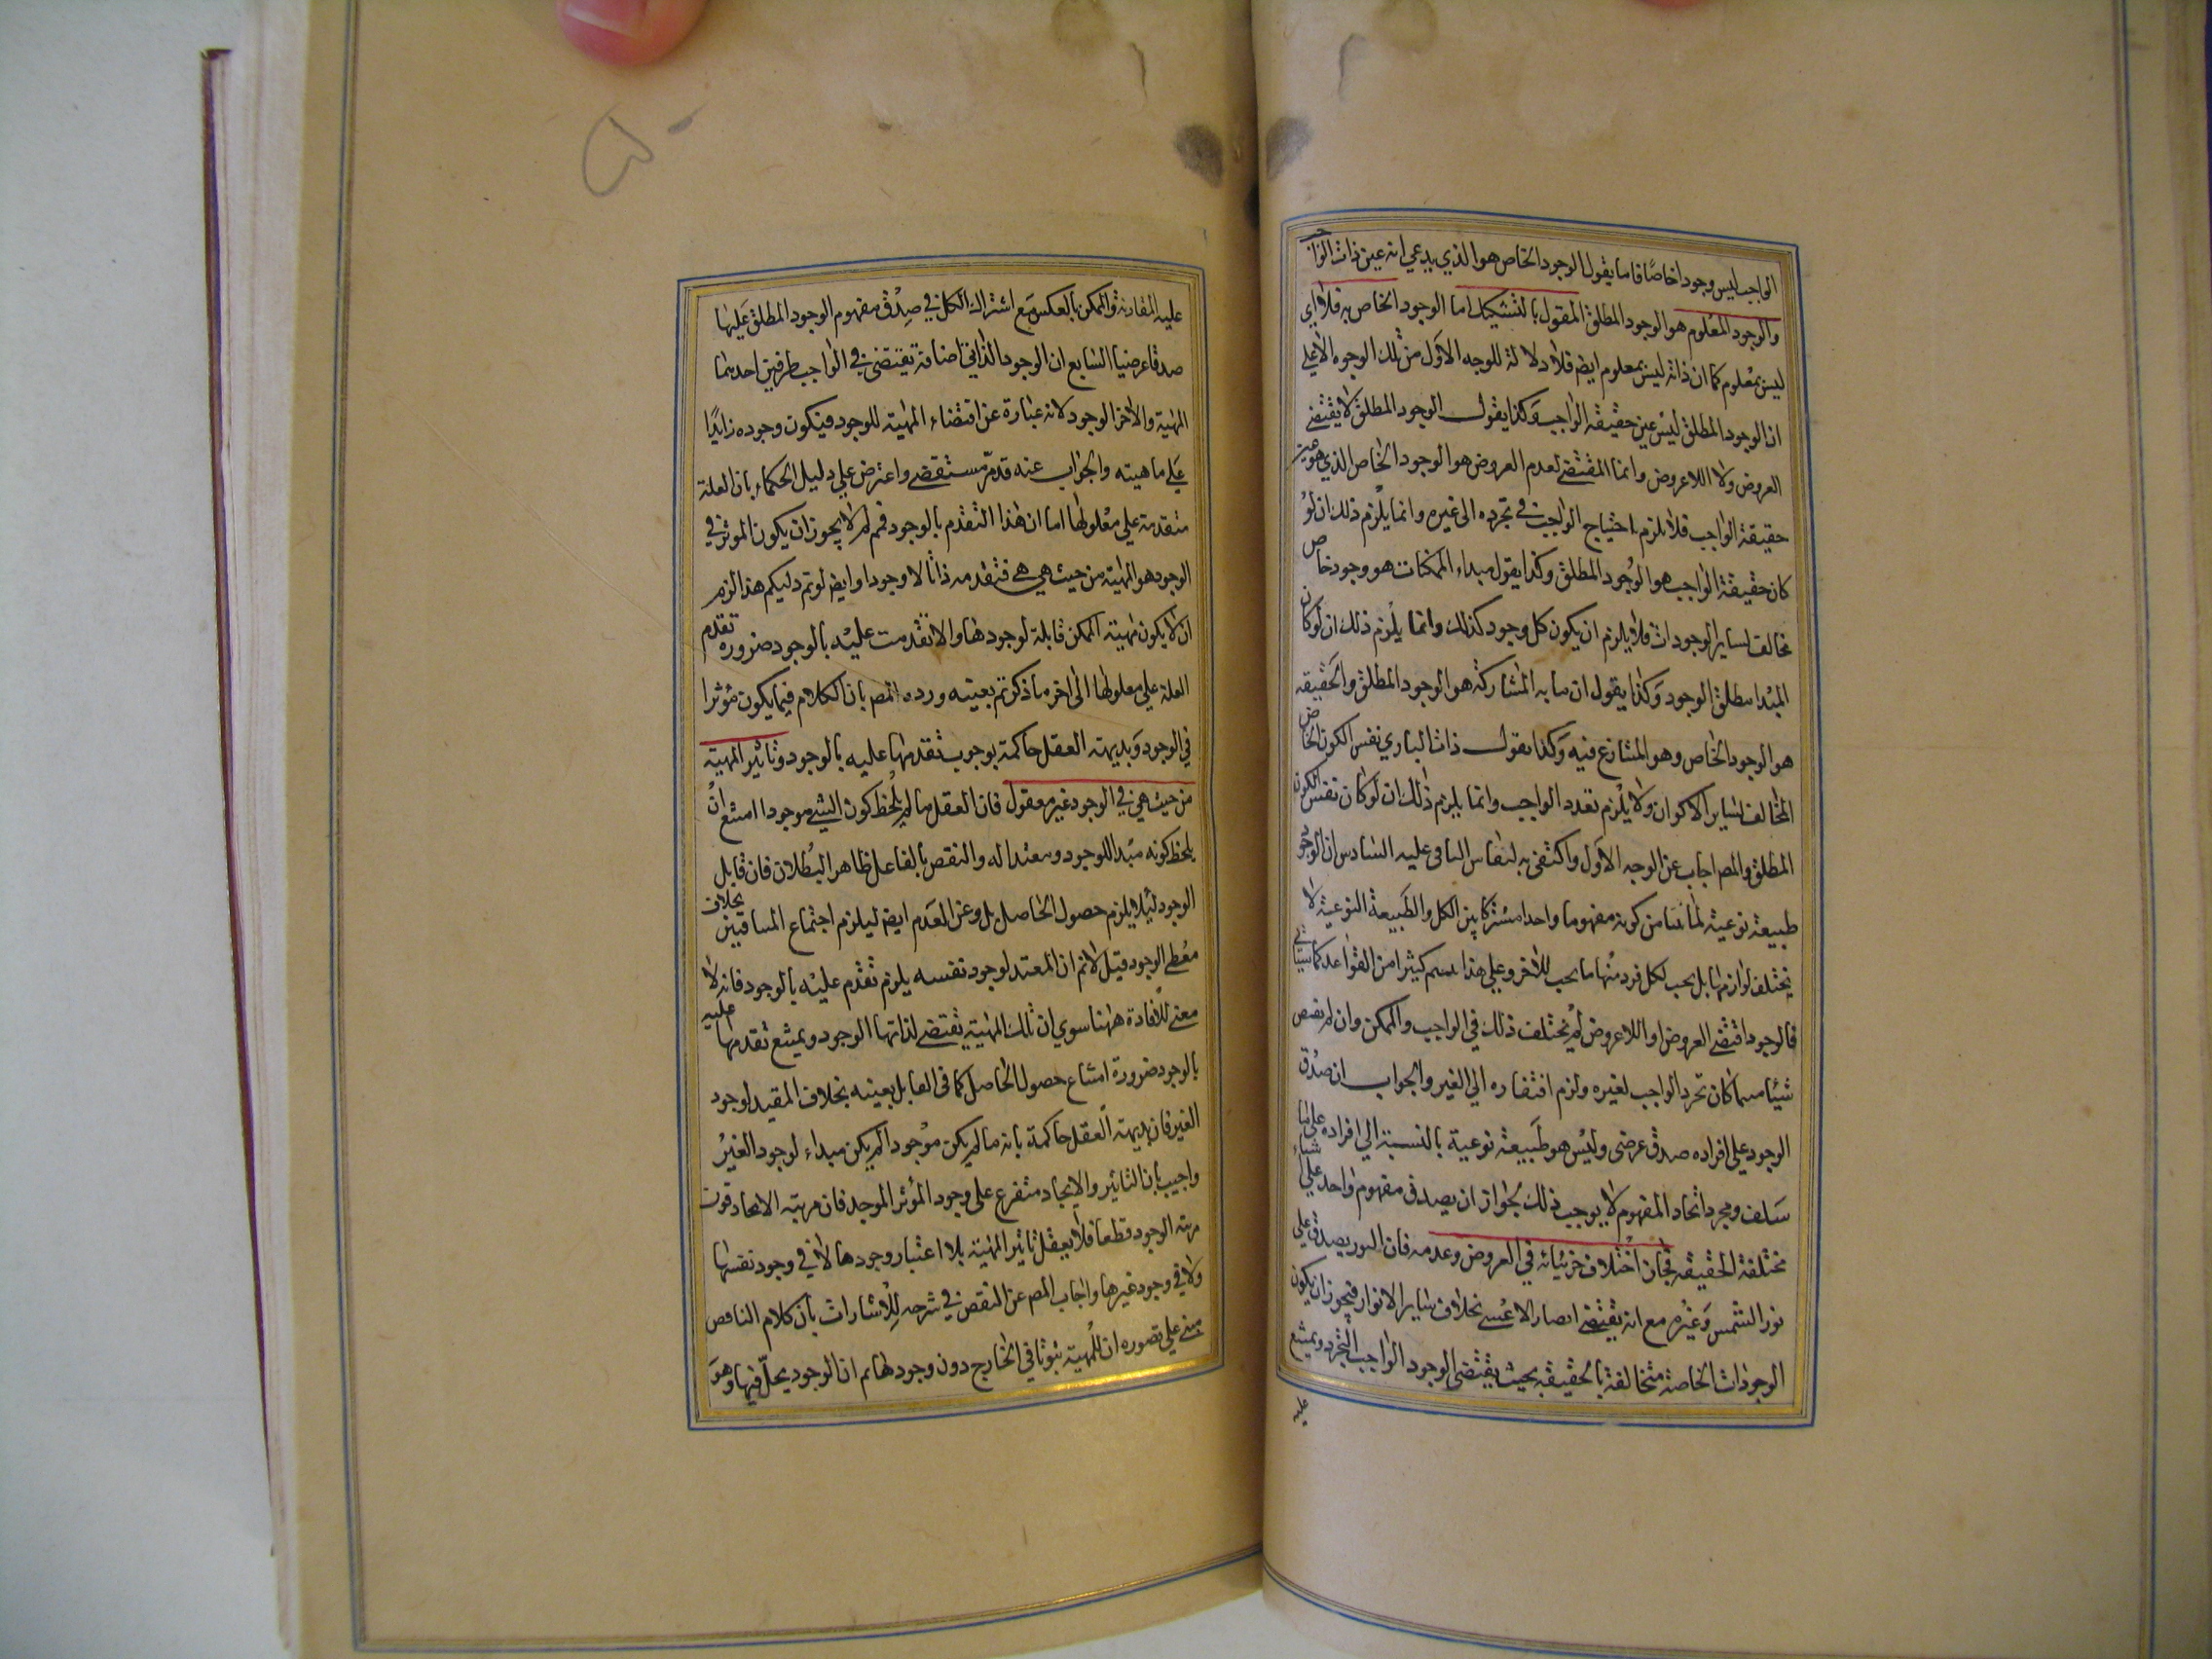 الواجب ليس وجودا خاصًا فاما يقول الوجود الخاص هو الذي يدعي انه عين ذات الواجب
والوجود المعلوم هو الوجود المطلق المقول بالتشكيك اما الوجود الخاص به فلا اي
ليس بمعلوم كما ان ذاته ليس بمعلوم ايضا فلا دلالة للوجه الاول من تلك الوجوه الا علي
ان الوجود المطلق ليس عين حقيقة الواجب وكذا يقول الوجود المطلق لا يقتضي
العروض ولا اللاعروض وانما المقتضي لعدم العروض هو الوجود الخاص الذي هو
حقيقة الواجب فلا يلزم احتياج الواجب في تجرده الي غيره وانما يلزم ذلك ان لو
كان حقيقة الواجب هو الوجود المطلق وكذا يقول مبداء الممكنات هو وجود خاص
مخالف لساير الوجودات فلا يلزم ان يكون كل وجود كذلك وانما يلزم ذلك ان لو كان
المبدا مطلق الوجود وكذا يقول ان ما به المشاركة هو الوجود المطلق والحقيقة
هو الوجود الخاص وهو المتنازع فيه وكذا يقول ذات الباري نفس الكون الخاص
المخالف لساير الاكوان ولا يلزم تعدد الواجب وانما يلزم ذلك ان لو كان نفس الكون
المطلق والمص اجاب عن الوجه الاول واكتفى به لنقاس الباقى عليه السادس ان الوجود
طبيعة نوعية لما من كونه مفهوما واحدا مشتركا بين الكل والطبيعة النوعية لا
يختلف لوازمها بل يجب لكل فرد منها ما يجب للاخر وعلي هذا كثيرا من القواعد كما سياتي
فالوجود اقتضي العروض او اللاعروض لم يختلف ذلك في الواجب والممكن وان لم يقتض
شيئا منهما كان تجرد الواجب لغيره ولزم افتقاره الي الغير والجواب ان صدق
الوجود علي افراده صدق عرضى وليس هو طبيعة نوعية بالنسبة الي افراده علي ما
سلف ومجرد اتحاد المفهوم لا يوجب ذلك لجواز ان يصدق مفهوم واحد علي اشياء
مختلفة الحقيقة فجاز اختلاف جزئياته في العروض وعدمه فان النور يصدق علي
نور الشمس وغيره مع انه يقتضي ابصار الاعشي بخلاف ساير الانوار فيجوز ان يكون
الوجودات الخاصة متخالفة بالحقيقة بحيث يقتضى الوجود الواجب التجرد ويمتنع
عليه
عليه المقارنة والممكن بالعكس مع اشتراك الكل في صدق مفهوم الوجود المطلق عليها
صدقا عرضيا السابع ان الوجود الذاتي اضافة تقتضى في الواجب طرفين احدهما
المهية والاخر الوجود لانه عبارة عن اقتضاء المهية للوجود فيكون وجوده زايدًا
علي ماهيته والجواب عنه قد مر مستقصي واعترض علي دليل الحكماء بان العلة
متقدمة علي معلولها اما ان هذا التقدم بالوجود فمم لم لا يجوز ان يكون الموثر في
الوجود هو المهية من حيث هي هي فتقدمه ذاتا لا وجودا وايضا لو تم دليكم هذا لزم
ان لا يكون مهية الممكن قابلة لوجودها والا تقدمت عليه بالوجود ضرورة تقدم
العلة علي معلولها الى اخر ما ذكرتم بعينه ورده المص بان الكلام فيما يكون مؤثرا
في الوجود وبديهة العقل حاكمة بوجوب تقدمها عليه بالوجود وتاثير المهية
من حيث هي في الوجود غير معقول فان العقل ما لم يلحظ كون الشي موجودا امتنع ان
يلحظ كونه مبدا للوجود ومفيدا له والنقص بالفاعل ظاهر البطلان فان قابل
الوجود ليلا يلزم حصول الحاصل بل وعن العدم ايضا ليلزم اجتماع المنافيين بخلاف
معطي الوجود قيل لانم ان المفيد لوجود نفسه يلزم تقدم عليه بالوجود فانه لا
معنى للافادة ههنا سوي ان تلك المهية تقتضي لذاتها الوجود ويمتنع تقدمها عليه
بالوجود ضرورة امتناع حصول الحاصل كما في القابل بعينه بخلاف المفيد لوجود
الغير فان بديهة العقل حاكمة بانه ما لم يكن موجودا لم يكن مبداء لوجود الغير
واجيب بان التاثير والايجاد متفرع علي وجود المؤثر الموجد فان مرتبه الايجاد فوق
مرتبه الوجود قطعا فلا يعقل تاثير المهية بلا اعتبار وجودها لا في وجود نفسها
ولا في وجود غيرها واجاب المص عن النقص في شرحه للاشارات بان كلام الناقص
مبني علي تصوره ان للمهية ثبوتا في الخارج دون وجودها ثم ان الوجود يحل فيها وهو